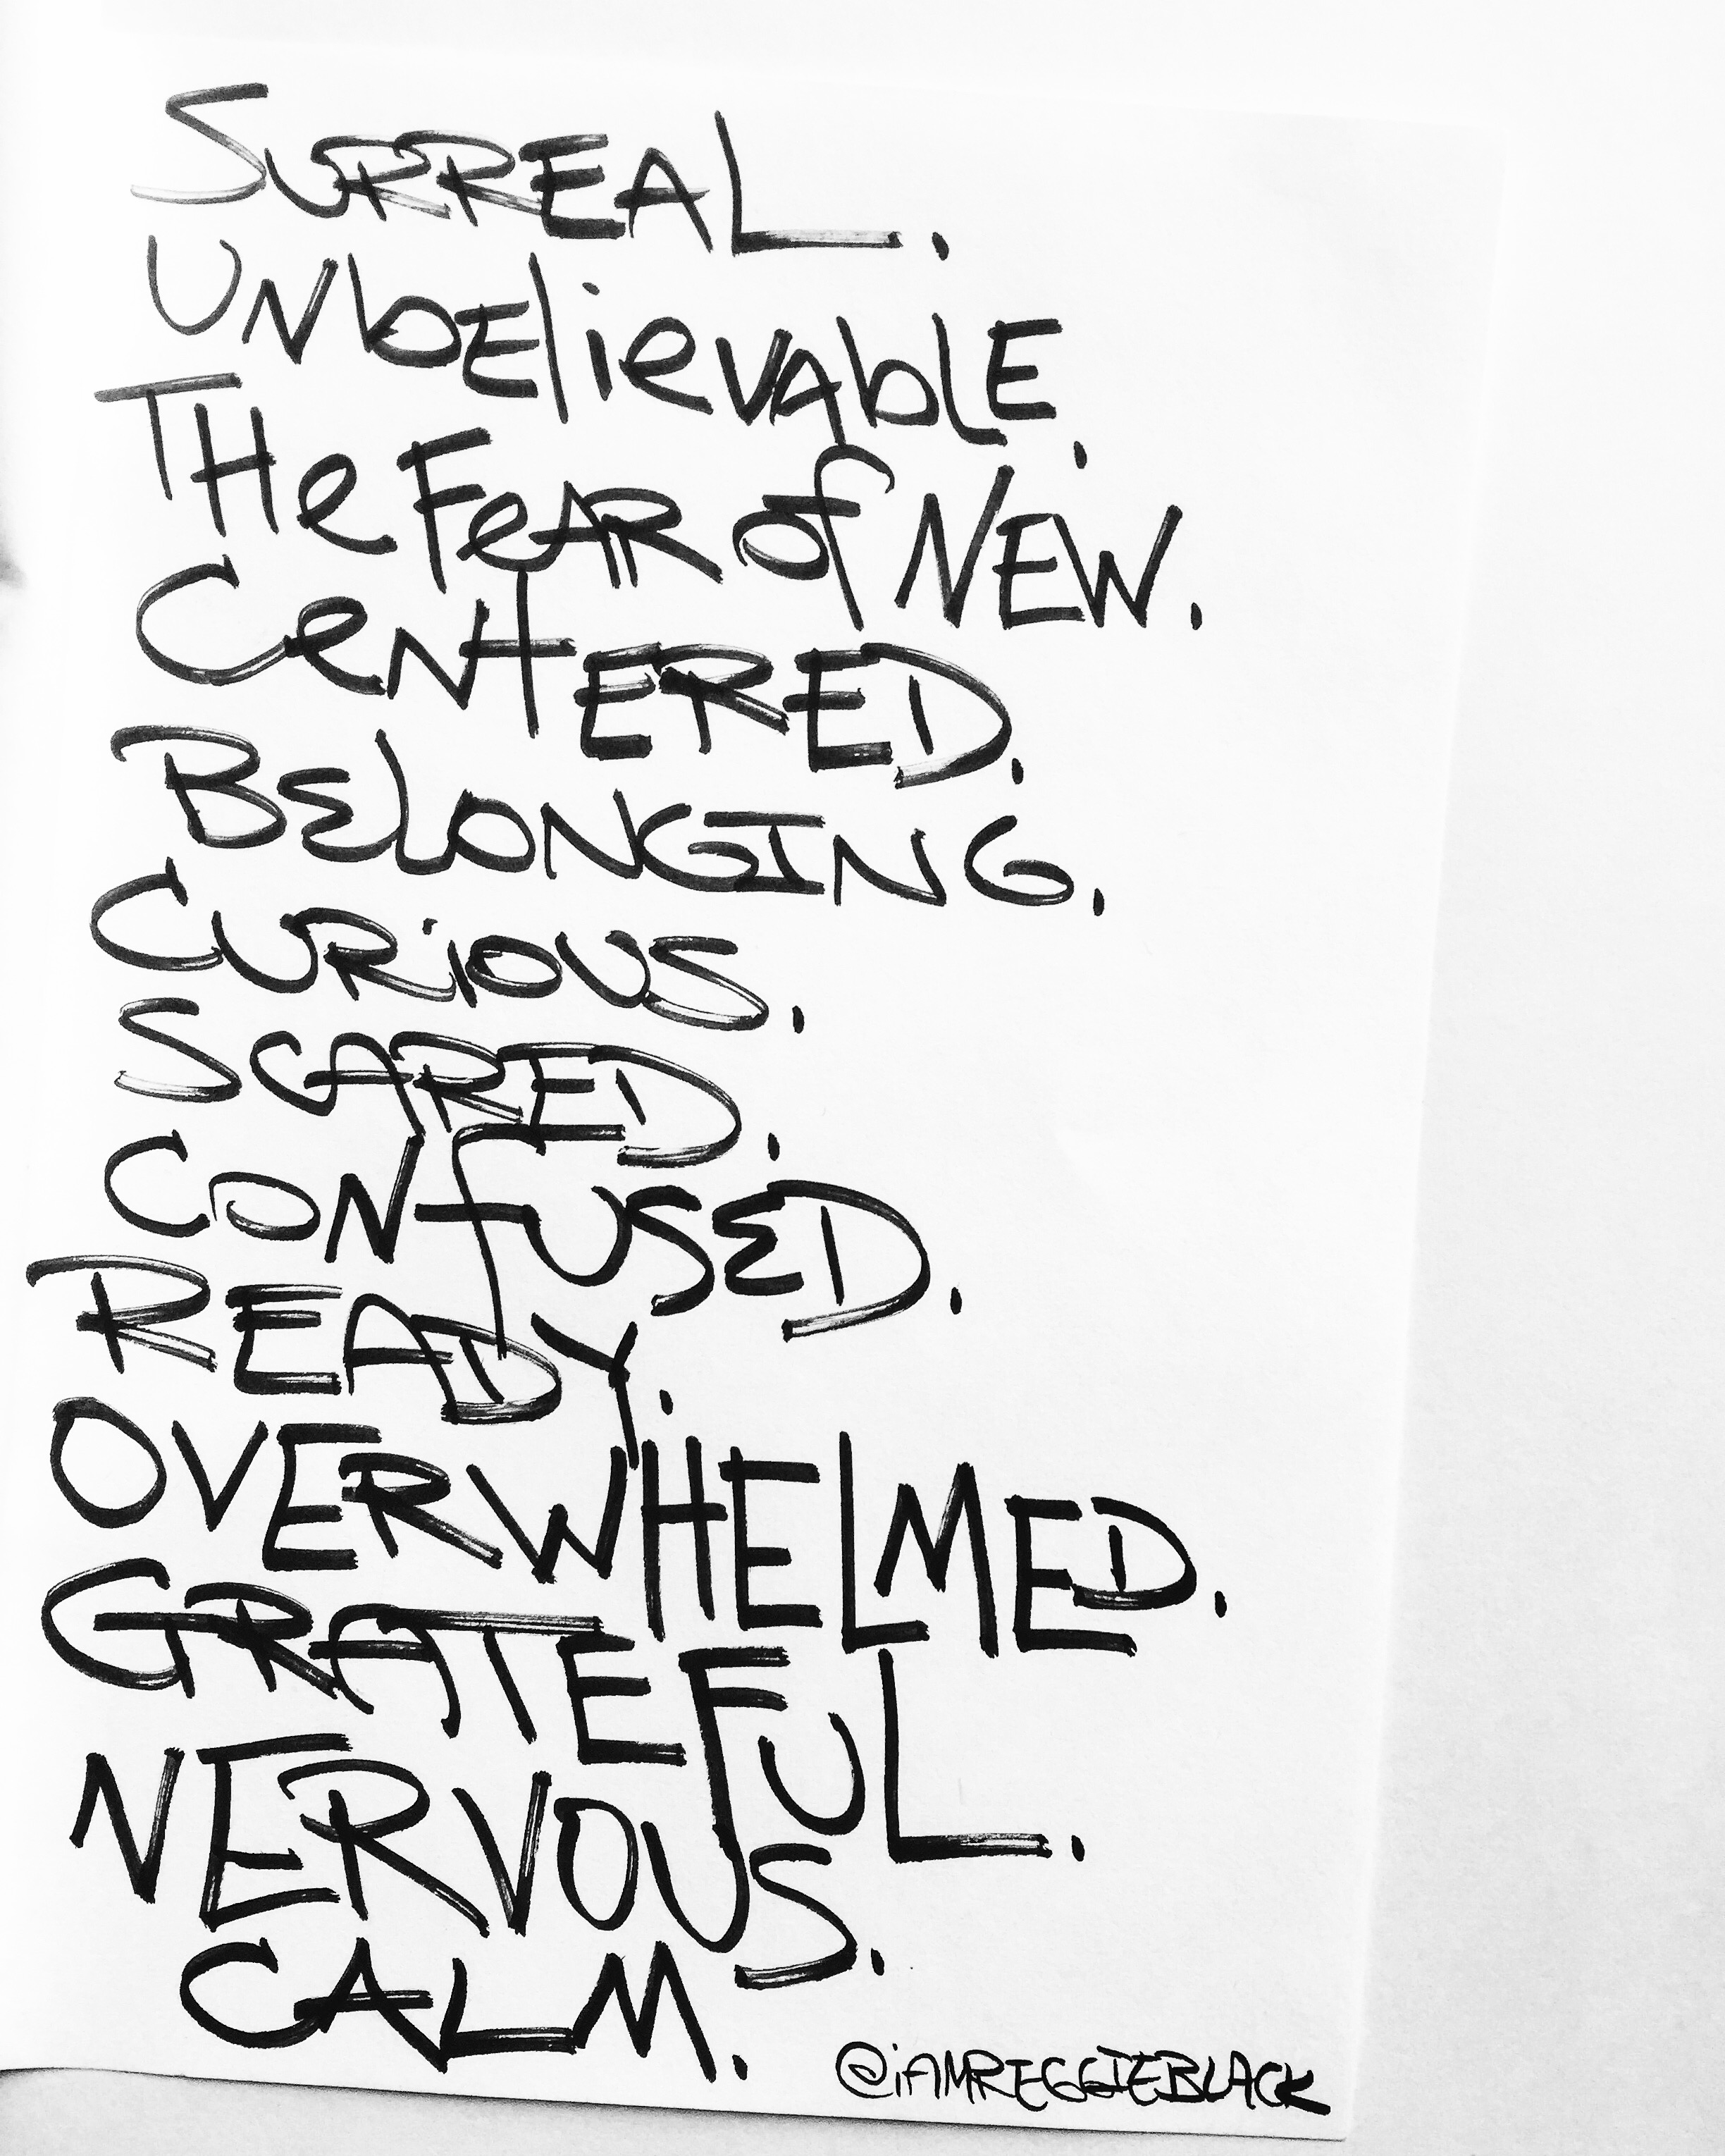 SURREAL.
UNbElievAblE.
THe FeAR of NEW.
CeNtERED.
BELONGING.
CURiOUS.
SCARED.
CONfUSED.
READY.
OVERWHELMED.
GRATEFUL.
NERVOUS.
CALM.
@iAMREGGIEBLACK